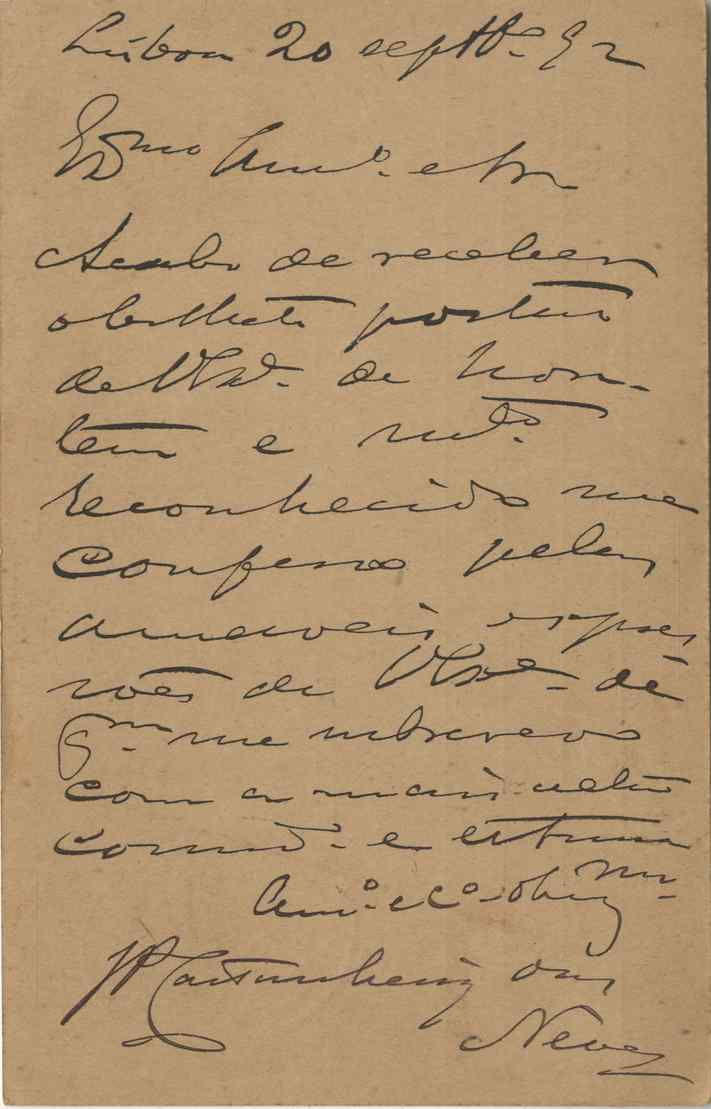 Lisboa 20 septbº 92
Exmo Amº. e Sr
Acabo de receber
o bilhete postal
de VExª. de hon-
tem e mtº.
reconhecido me
confesso pelas
amaveis expres
sões de VExª. de
qm. me subscrevo
com a mais
consid. e estima
Amº. e Cº. obrigmo.
JP Castanheira das
Neves